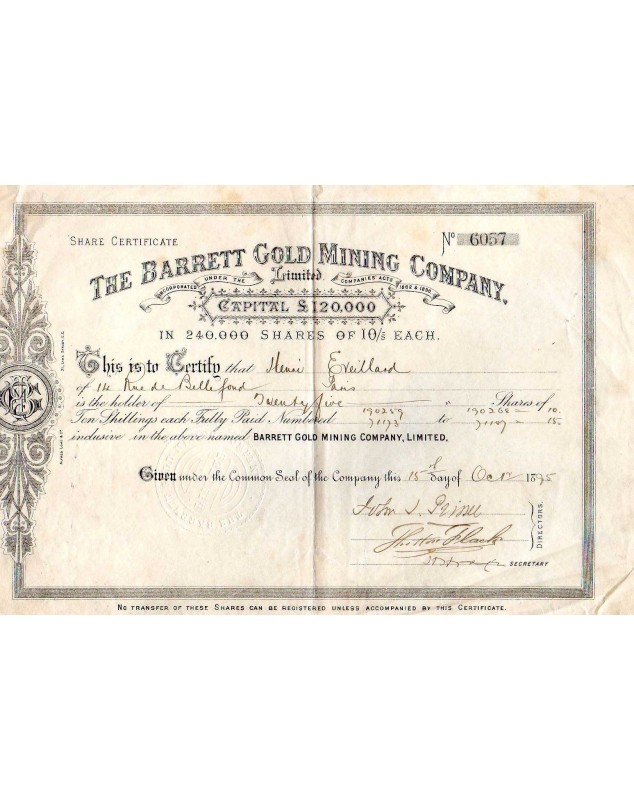 SHARE CERTIFICATE
No 6057
THE BARRETT GOLD MINING COMPANY,
INCORPORATED UNDER THE COMPANIES' ACTS 1862 & 1890.
Limited
CAPITAL £120,000
IN 240,000 SHARES OF 10/s EACH.
This is to Certify that Henri Eveillard
of 14 Rue de Bellefond Paris
is the holder of Twenty five " Shares of
190259 190268 = 10.
Ten Shillings each Fully Paid Numbered 71173 to 71187 = 15.
inclusive in the above named BARRETT GOLD MINING COMPANY, LIMITED.
Given under the Common Seal of the Company this 15th day of Octr 1895
John S. Prince
DIRECTORS.
SECRETARY
NO TRANSFER OF THESE SHARES CAN BE REGISTERED UNLESS ACCOMPANIED BY THIS CERTIFICATE.